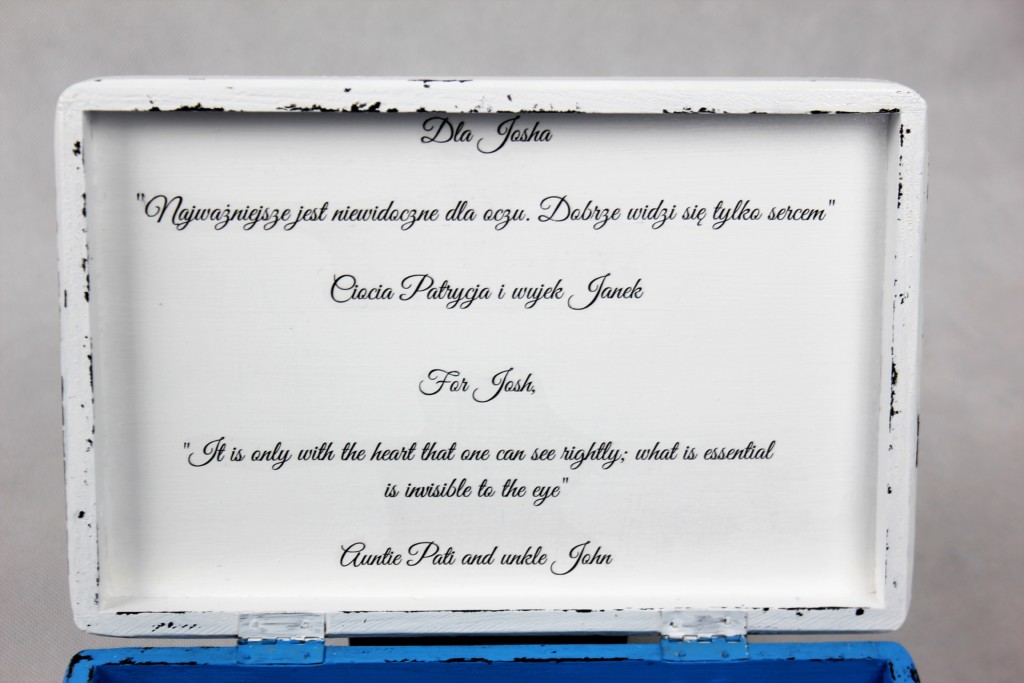 Dla Josha
"Najważniejsze jest niewidoczne dla oczu. Dobrze widzi się tylko sercem"
Ciocia Patrycja i wujek Janek
For Josh,
"It is only with the heart that one can see rightly; what is essential
is invisible to the eye"
Auntie Pati and unkle John